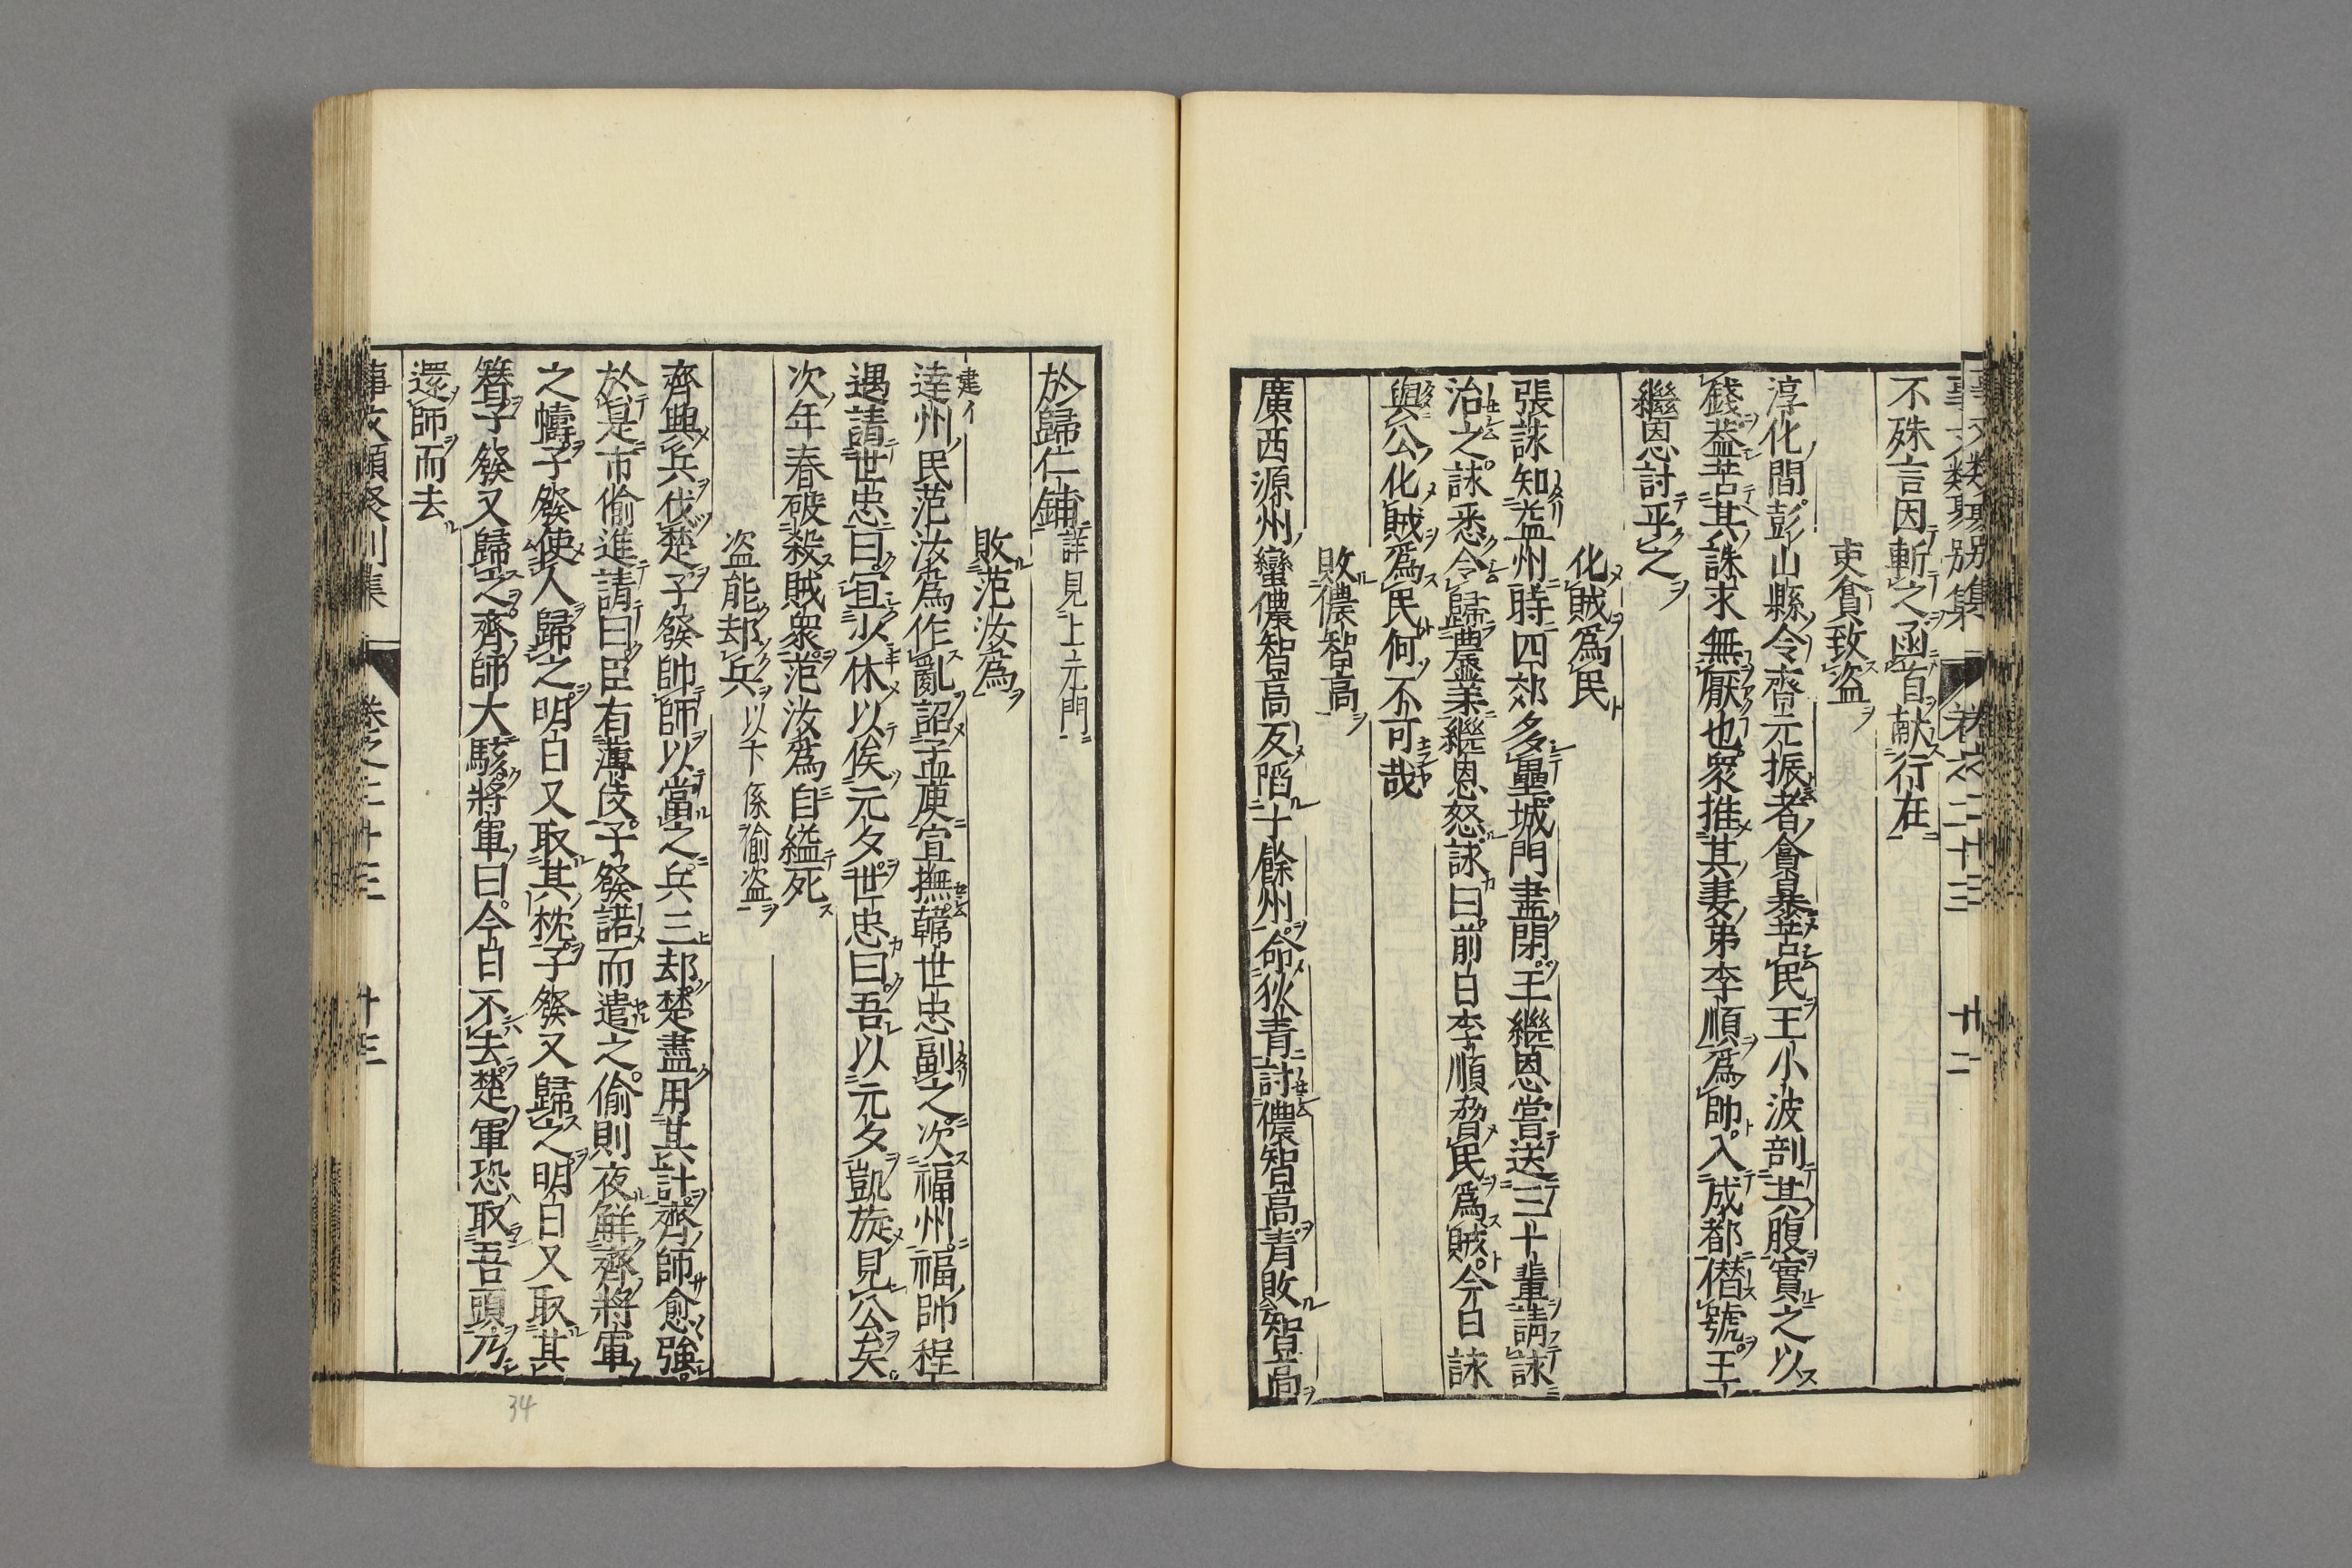 事文類聚別集 卷之二十三 十二
不殊言因斬之函首献行在
吏貪致盗
淳化間彭山縣令齊元振者貪暴苦民王小波剖其腹實之以
錢葢苦其誅求無厭也衆推其妻弟李順爲帥入成都僣號王
繼恩討平之
化賊爲民
張詠知益州時四郊多壘城門盡閉王繼恩嘗送三十輩請詠
治之詠悉令歸農業繼恩怒詠曰前日李順脅民爲賊今日詠
與公化賊爲民何不可哉
敗儂智高
廣西源州蠻儂智高反陷十餘州命狄青討儂智高青敗智高
於歸仁鋪詳見上元門
敗范汝爲
建イ
逹州民范汝爲作亂詔孟庾宣撫韓世忠副之次福州福帥程
邁請世忠曰宜少休以俟元夕世忠曰吾以元夕凱旋見公矣
次年春破殺賊衆范汝爲自縊死
盗能却兵以下係偷盗
齊興兵伐楚子發帥師以當之兵三却楚盡用其計齊師愈強
於是市偷進請曰臣有薄伎子發諾而遣之偷則夜觧齊將軍
之幬子發使人歸之明日又取其枕子發又歸之明日又取其
簪子發又歸之齊師大駭將軍曰今日不去楚軍恐取吾頭乃
還師而去
事文類聚別集 卷之二十三 十三
34